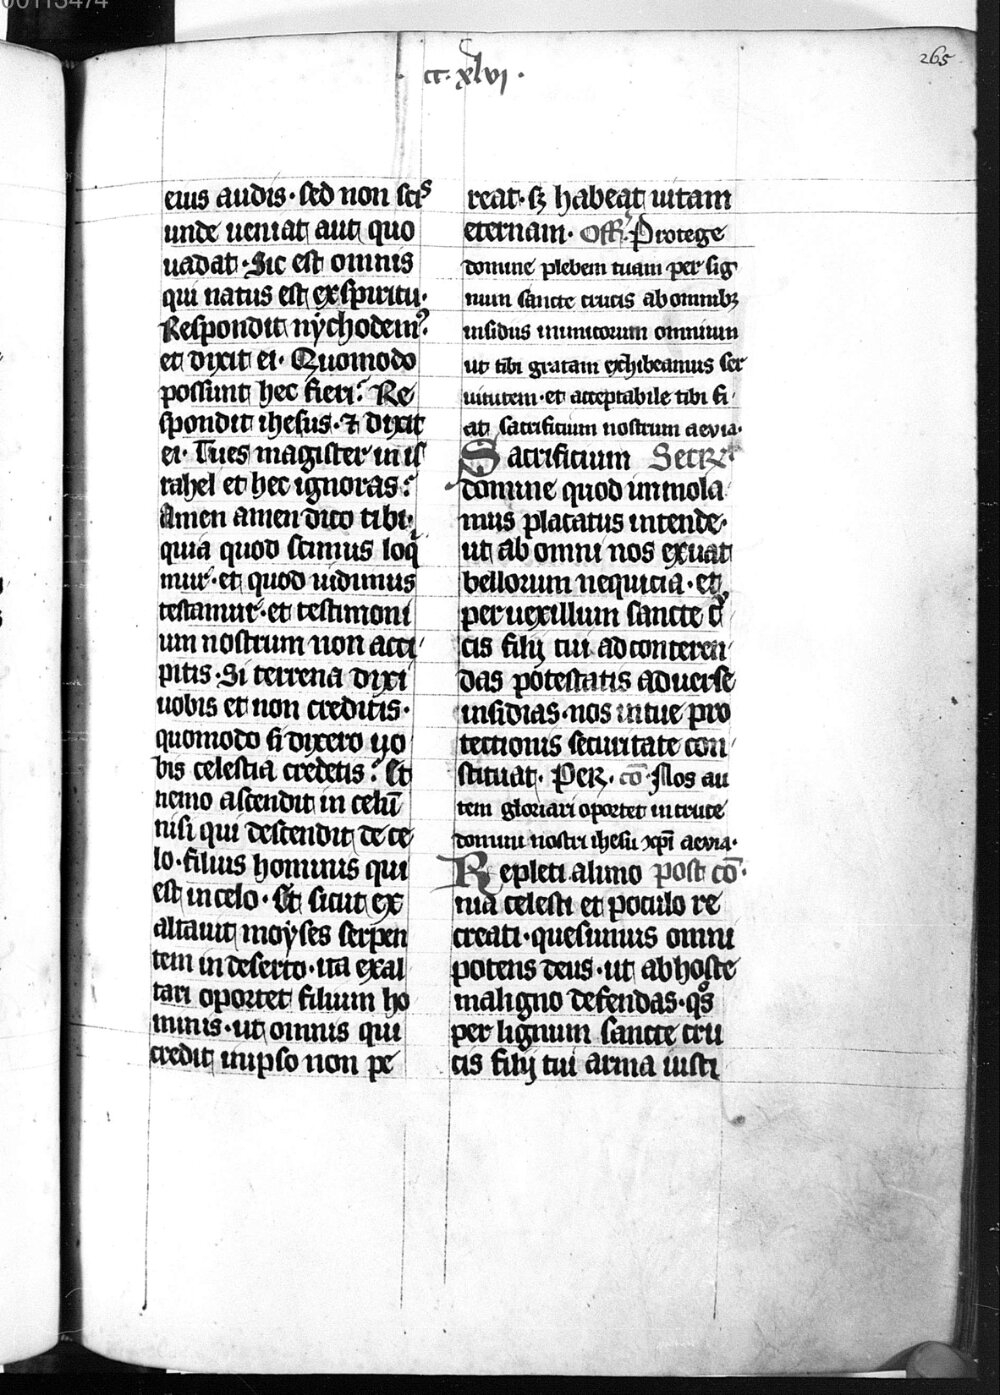 00113474
265
cc·xlvi·
eius audis· sed non scis
unde ueniat aut quo
uadat· Sic est omnis
qui natus est ex spiritu·
Respondit nychodemꝰ·
et dixit ei· Quomodo
possunt hec fieri? Re
spondit ihesus· ⁊ dixit
ei· Tu es magister in is
rahel et hec ignoras?
Amen amen dico tibi·
quia quod scimus loqͥ
mur· et quod uidimus
testamur· et testimoni
um nostrum non acci
pitis· Si terrena dixi
uobis et non creditis·
quomodo si dixero uo
bis celestia credetis? Et
nemo ascendit in celū
nisi qui descendit de ce
lo· filius hominis qui
est in celo· Et sicut ex
altauit moyses serpen
tem in deserto· ita exal
tari oportet filium ho
minis· ut omnis qui
credit in ipso non pe
reat· sꝫ habeat uitam
eternam· Off· Protege
domine plebem tuam per sig
num sancte crucis ab omnibꝫ
insidiis inimicorum omnium
ut tibi gratam exhibeamus ser
uitutem· et acceptabile tibi fi
at sacrificium nostrum aeuia·
Sacrificium Secꝛ·
domine quod immola
mus placatus intende·
ut ab omni nos exuat
bellorum nequicia· et
per uexillum sancte cͮ
cis filij tui ad conteren
das potestatis aduerse
insidias· nos in tue pro
tectionis securitate con
stituat· Peꝛ· cō· Nos au
tem gloriari oportet in cruce
domini nostri ihesu xp̄i aeuia·
Repleti alimo post cō·
nia celesti et poculo re
creati· quesumus omni
potens deus· ut ab hoste
maligno defendas· qͦs
per lignum sancte cru
cis filij tui arma iusti